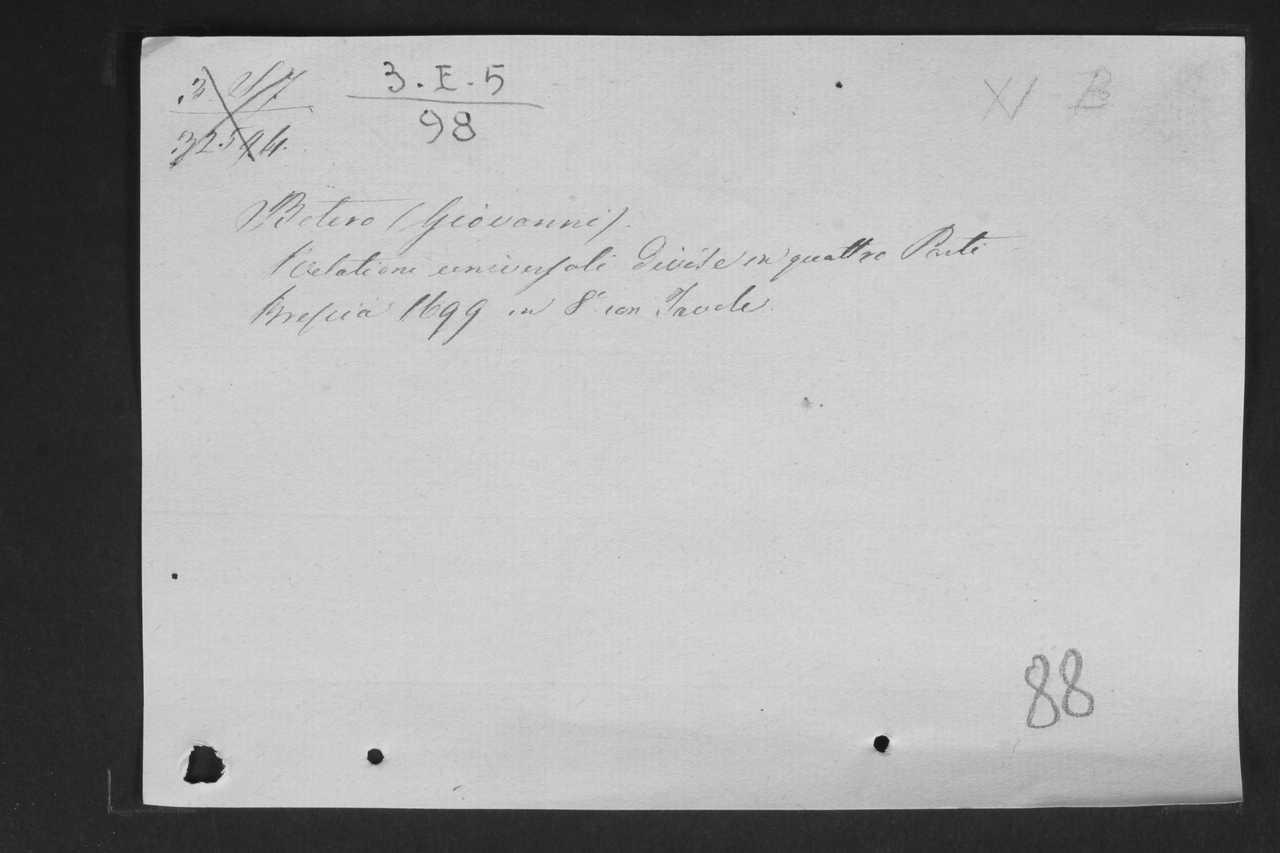 3. E. 5
98
XV B
Botero (Giovanni).
Relationi universali divise in quattro Parti
Brescia 1699 in 8° con Tavole.
88